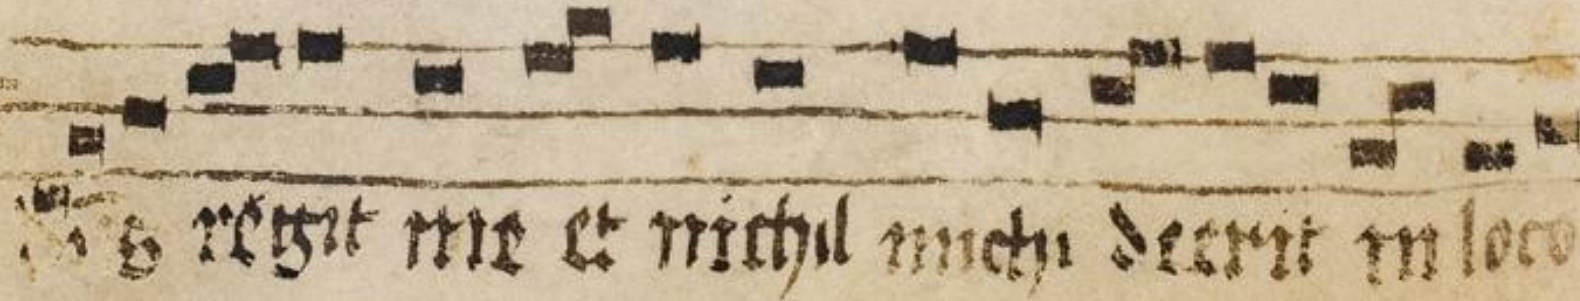 regit me et nichil michi deerit in loco